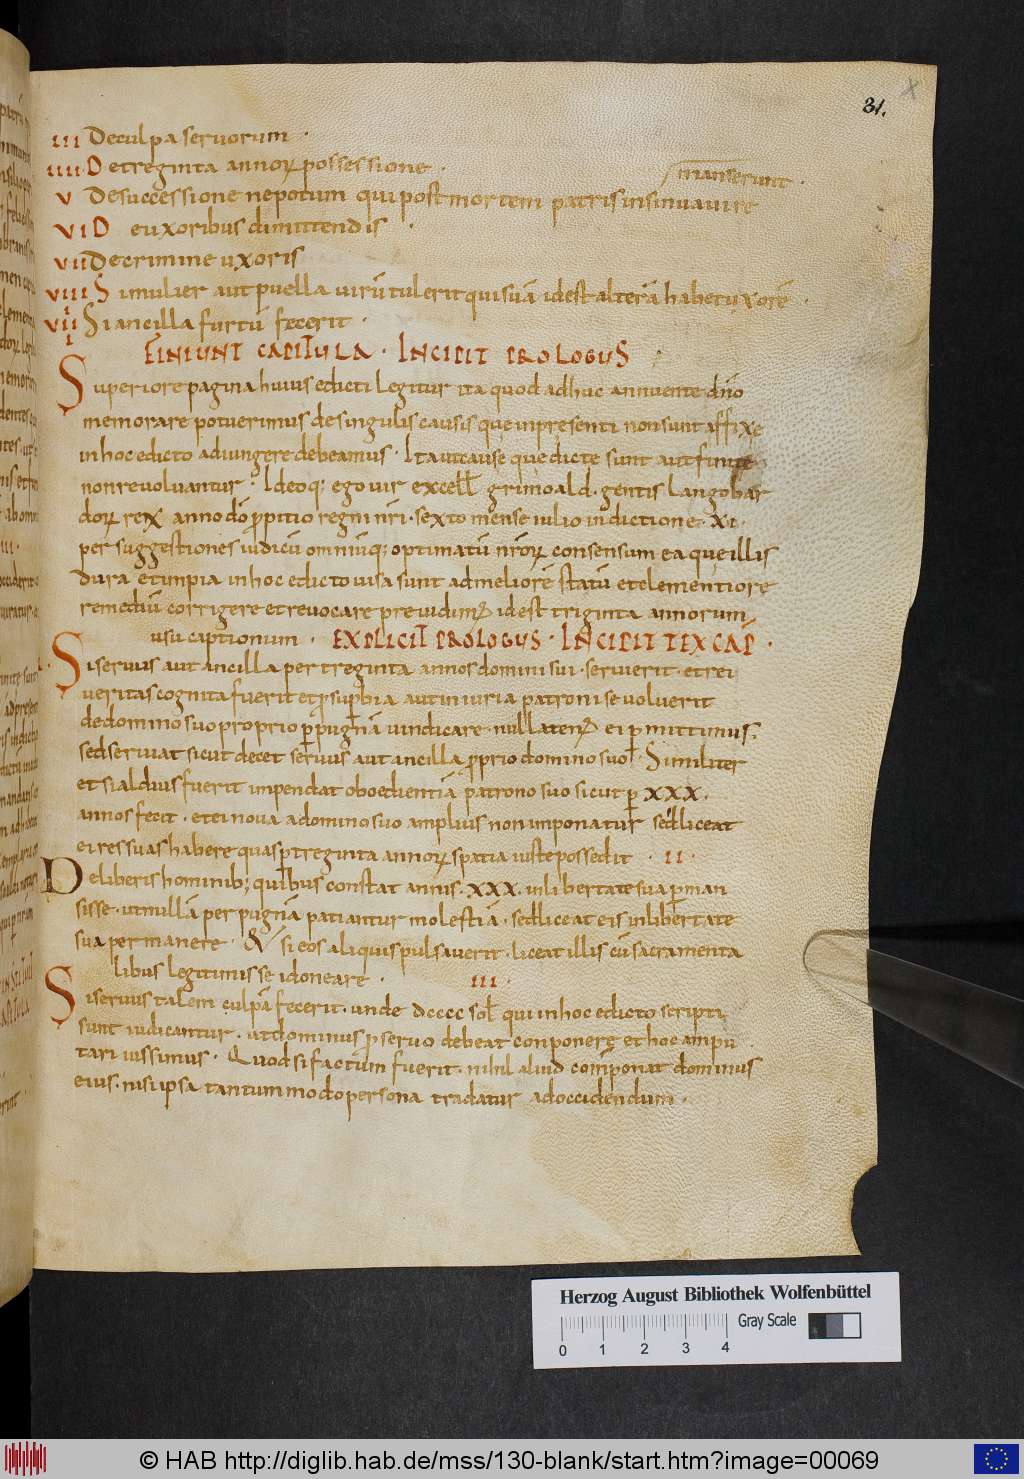 31.
III De culpa servorum ·
IIII · De treginta annoꝝ possessione ·
manserunt ·
V De successione nepotum qui post mortem patris in sinu avi re
VI De uxoribus dimittendis ·
VII De crimine uxoris
VIII Si mulier aut puella virū tulerit qui suā id est alterā habet uxorē ·
VIIII Si ancilla furtū fecerit ·
FINIUNT CAPITULA · INCIPIT PROLOGUS
Superiore pagina huius edicti legitur ita quod adhuc annuente dn̄o
memorare potuerimus de singulis causis que in presenti non sunt affixe
in hoc edicto adiungere debeamus · Ita ut cause que dicte sunt aut finite
non revolvantur · Ideoq; ego vir excell grimoald · gentis langobar
doꝝ rex anno dō propitio regni nr̄i · sexto mense iulio indictione · XI ·
per suggestiones iudicū omniūq; optimatū nr̄oꝝ consensum ea que illis
dura et impia in hoc edicto visa sunt ad meliorē statū et clementiore
remediū corrigere et revocare previdim; id est triginta annorum
usu captionum · EXPLICIT PROLOGUS · INCIPIT TEX CAP ·
Si servus aut ancilla per treginta annos domini sui · servierit · et rei
veritas cognita fuerit et p superbia aut iniuria patroni se voluerit
de domino suo proprio p pugnā vindicare · nullaten; ei pmittimus ;
sed serviat sicut decet servus aut ancilla proprio domino suo · Similiter
et si aldius fuerit impendat oboedientiā patrono suo sicut p XXX ·
annos fecit · et ei nova a domino suo amplius non imponatur sed liceat
ei res suas habere quas p treginta annoꝝ spatia iuste possedit · II ·
De liberis hominib; quibus constat annis · XXX · in libertate sua pman
sisse · ut nullā per pugnā patiantur molestiā · sed liceat eis in libertate
sua permanere · & si eos aliquis pulsaverit · liceat illis cū sacramenta
libus legitimis se idoneare · III ·
Si servus talem culpā fecerit · unde DCCCC sol qui in hoc edicto scripti
sunt iudicantur · ut dominus p servo debeat conponere et hoc ampu
tari iussimus · Quod si factum fuerit · nihil aliud componat dominus
eius · nisi ipsa tantummodo persona tradatur ad occidendum ·
Herzog August Bibliothek Wolfenbüttel
Gray Scale
0 1 2 3 4
© HAB http://diglib.hab.de/mss/130-blank/start.htm?image=00069